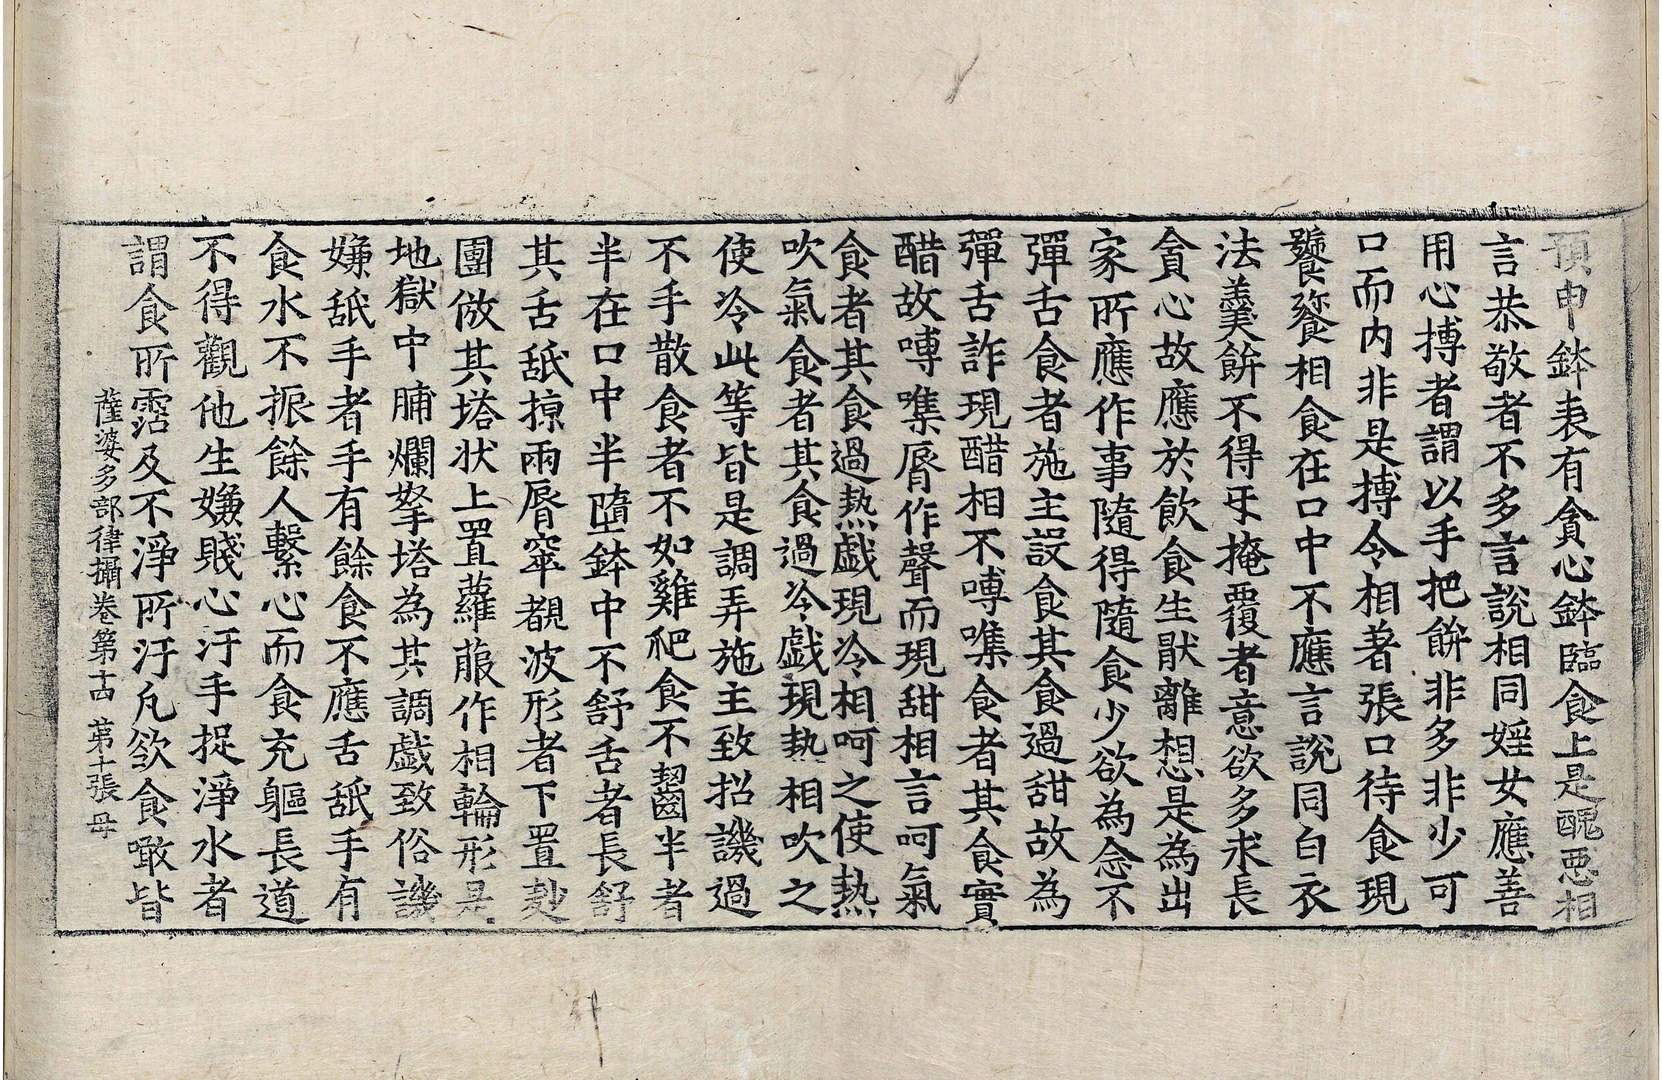 預申鉢表有貪心鉢臨食上是醜惡相
言恭敬者不多言說相同婬女應善
用心摶者謂以手把餅非多非少可
口而內非是摶令相著張口待食現
饕餮相食在口中不應言說同白衣
法羹餅不得牙掩覆者意欲多求長
貪心故應於飲食生猒離想是為出
家所應作事隨得隨食少欲為念不
彈舌食者施主設食其食過甜故為
彈舌詐現醋相不㗘㗱食者其食實
醋故㗘㗱脣作聲而現甜相言呵氣
食者其食過熱戲現冷相呵之使熱
吹氣食者其食過冷戲現熱相吹之
使冷此等皆是調弄施主致招譏過
不手散食者不如雞爬食不齧半者
半在口中半墮鉢中不舒舌者長舒
其舌舐掠兩脣窣覩波形者下置麨
團倣其塔状上置蘿菔作相輪形是
地獄中脯爛拏塔為其調戲致俗譏
嫌舐手者手有餘食不應舌舐手有
食水不振餘人繫心而食充軀長道
不得觀他生嫌賤心汙手捉淨水者
謂食所霑及不淨所汙凡欲食噉皆
薩婆多部律攝卷第十四 第十張 母